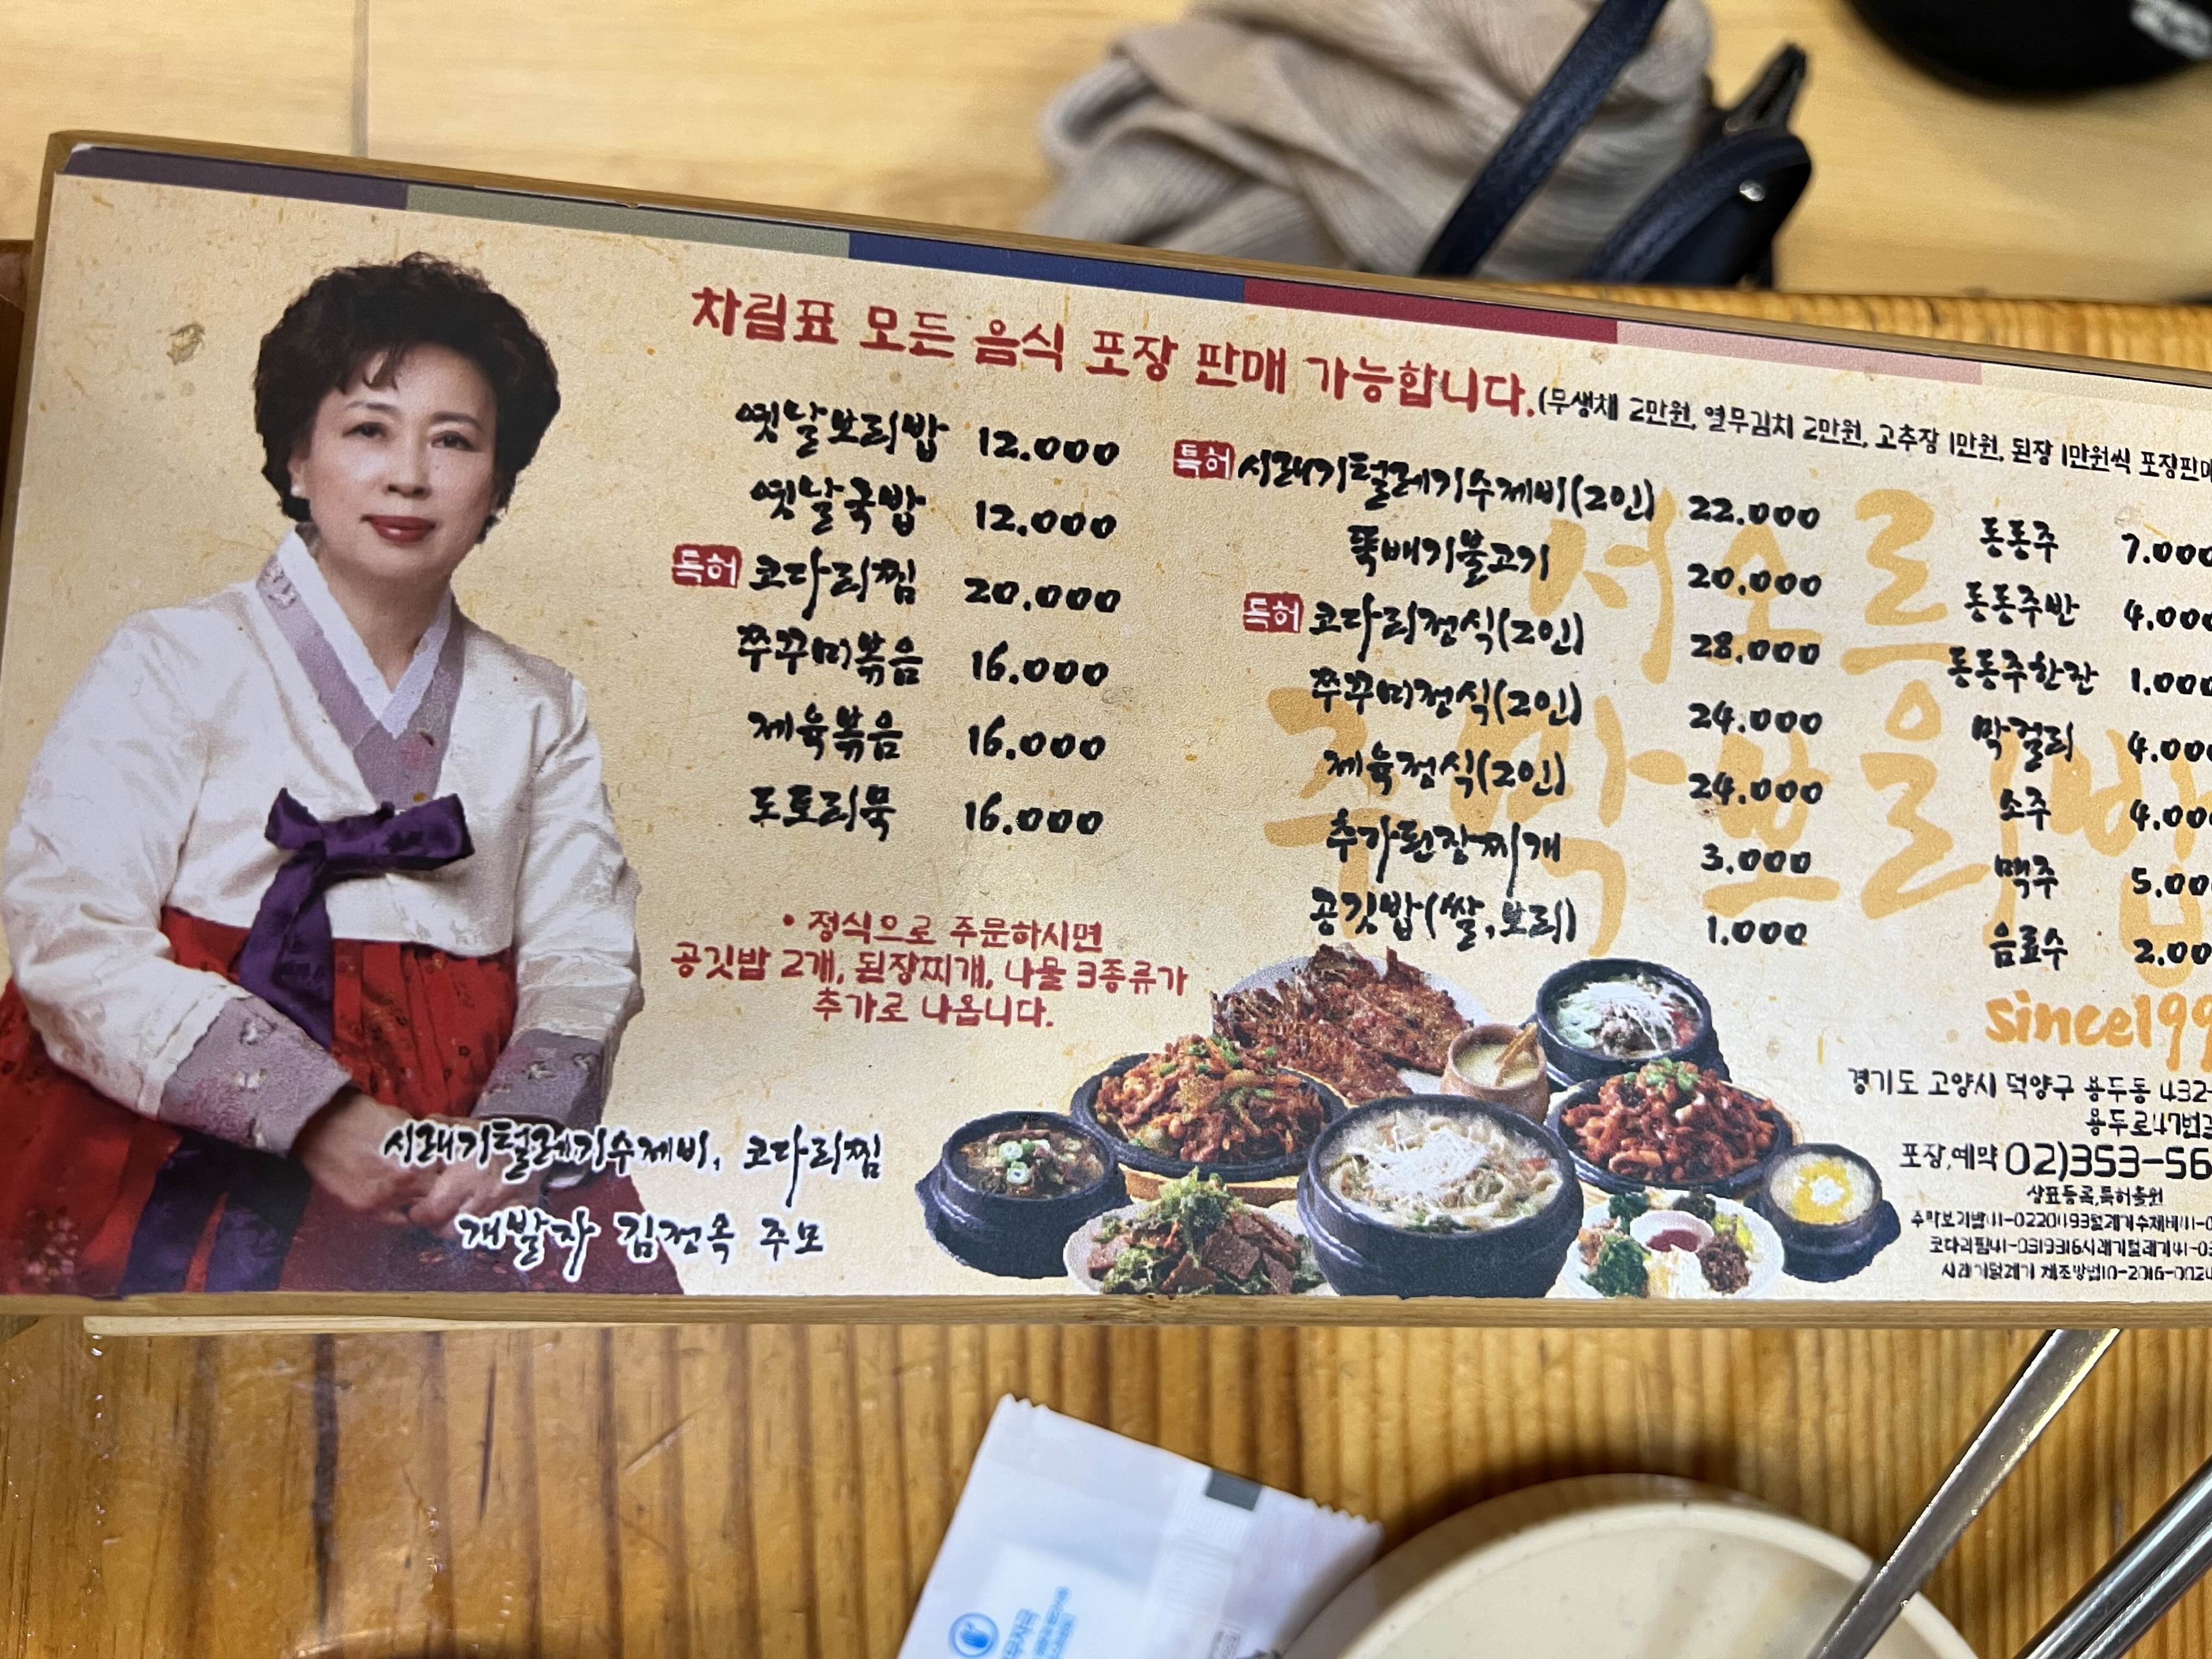 차림표 모든 음식 포장 판매 가능합니다.(무생채 2만원, 열무김치 2만원, 고추장 1만원, 된장 1만원씩 포장판매
옛날보리밥 12.000
옛날국밥 12.000
특허 코다리찜 20.000
쭈꾸미볶음 16.000
제육볶음 16.000
도토리묵 16.000
• 정식으로 주문하시면
공깃밥 2개, 된장찌개, 나물 3종류가
추가로 나옵니다.
특허 시래기털레기수제비(2인) 22.000
뚝배기불고기 20.000
특허 코다리정식(2인) 28.000
쭈꾸미정식(2인) 24.000
제육정식(2인) 24.000
추가된장찌개 3.000
공깃밥(쌀,보리) 1.000
동동주 7.000
동동주반 4.000
동동주한잔 1.000
막걸리 4.000
소주 4.000
맥주 5.00
음료수 2.00
서오릉
주막보리밥
since199
경기도 고양시 덕양구 용두동 432-
용두로47번길
포장,예약 02)353-56
상표등록,특허출원
시래기털레기수제비, 코다리찜
개발자 김전옥 주모